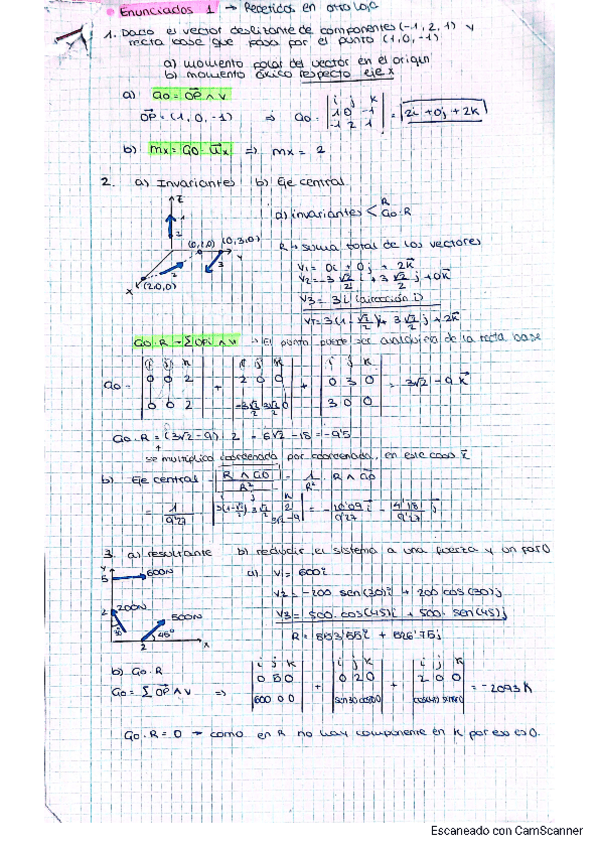 Enunciados 1 → Repetidos en otra hoja
1. Dado el vector deslizante de componentes (-1, 2, 1) y
recta base que pasa por el punto (1, 0, -1)
a) momento polar del vector en el origen
b) momento áxico respecto eje x
a) Go = OP ∧ v
OP = (1, 0, -1) ⇒ Go = | i j k / 1 0 -1 / -1 2 1 | = 2i + 0j + 2k
b) mx = Go · ux ⇒ mx = 2
2. a) Invariantes b) Eje central
a) invariantes < R Go·R
R → suma total de los vectores
V1 = 0i + 0j + 2k
V2 = -3 √2/2 i + 3 √2/2 j + 0k
V3 = 3i (dirección i)
VT = 3(1 - √2/2)i + 3 √2/2 j + 2k
z
1
(0,1,0) (0,3,0)
y
2 3
x (2,0,0)
Go·R = ΣOP ∧ v → El punto puede ser cualquiera de la recta base
Go = | i j k / 0 0 2 / 0 0 2 | + | i j k / 2 0 0 / -3√2/2 3√2/2 0 | + | i j k / 0 3 0 / 3 0 0 | = 3√2 - 9 k
Go·R = (3√2 - 9) · 2 = 6√2 - 18 = -9'5
se multiplica coordenada por coordenada, en este caso
b) Eje central = R ∧ GO / R² = 1/R² · R ∧ GO
= 1/9'27 | i j k / 3(1-√2/2) 3√2/2 2 / 3√2-9 | = -10'09/9'27 i - 4'18/9'27 j
3. a) resultante b) reducir el sistema a una fuerza y un par
y
5 600N
2 200N
30
500N
45°
2 x
a) V1 = 600i
V2 = -200 sen(30)i + 200 cos(30)j
V3 = 500 · cos(45)i + 500 · sen(45)j
R = 853'55i + 526'75j
b) Go·R
Go = Σ OP ∧ v ⇒ | i j k / 0 5 0 / 600 0 0 | + | i j k / 0 2 0 | + | i j k / 2 0 0 | = -2093 k
Go·R = 0 → como en R no hay componente en k por eso es 0.
Escaneado con CamScanner